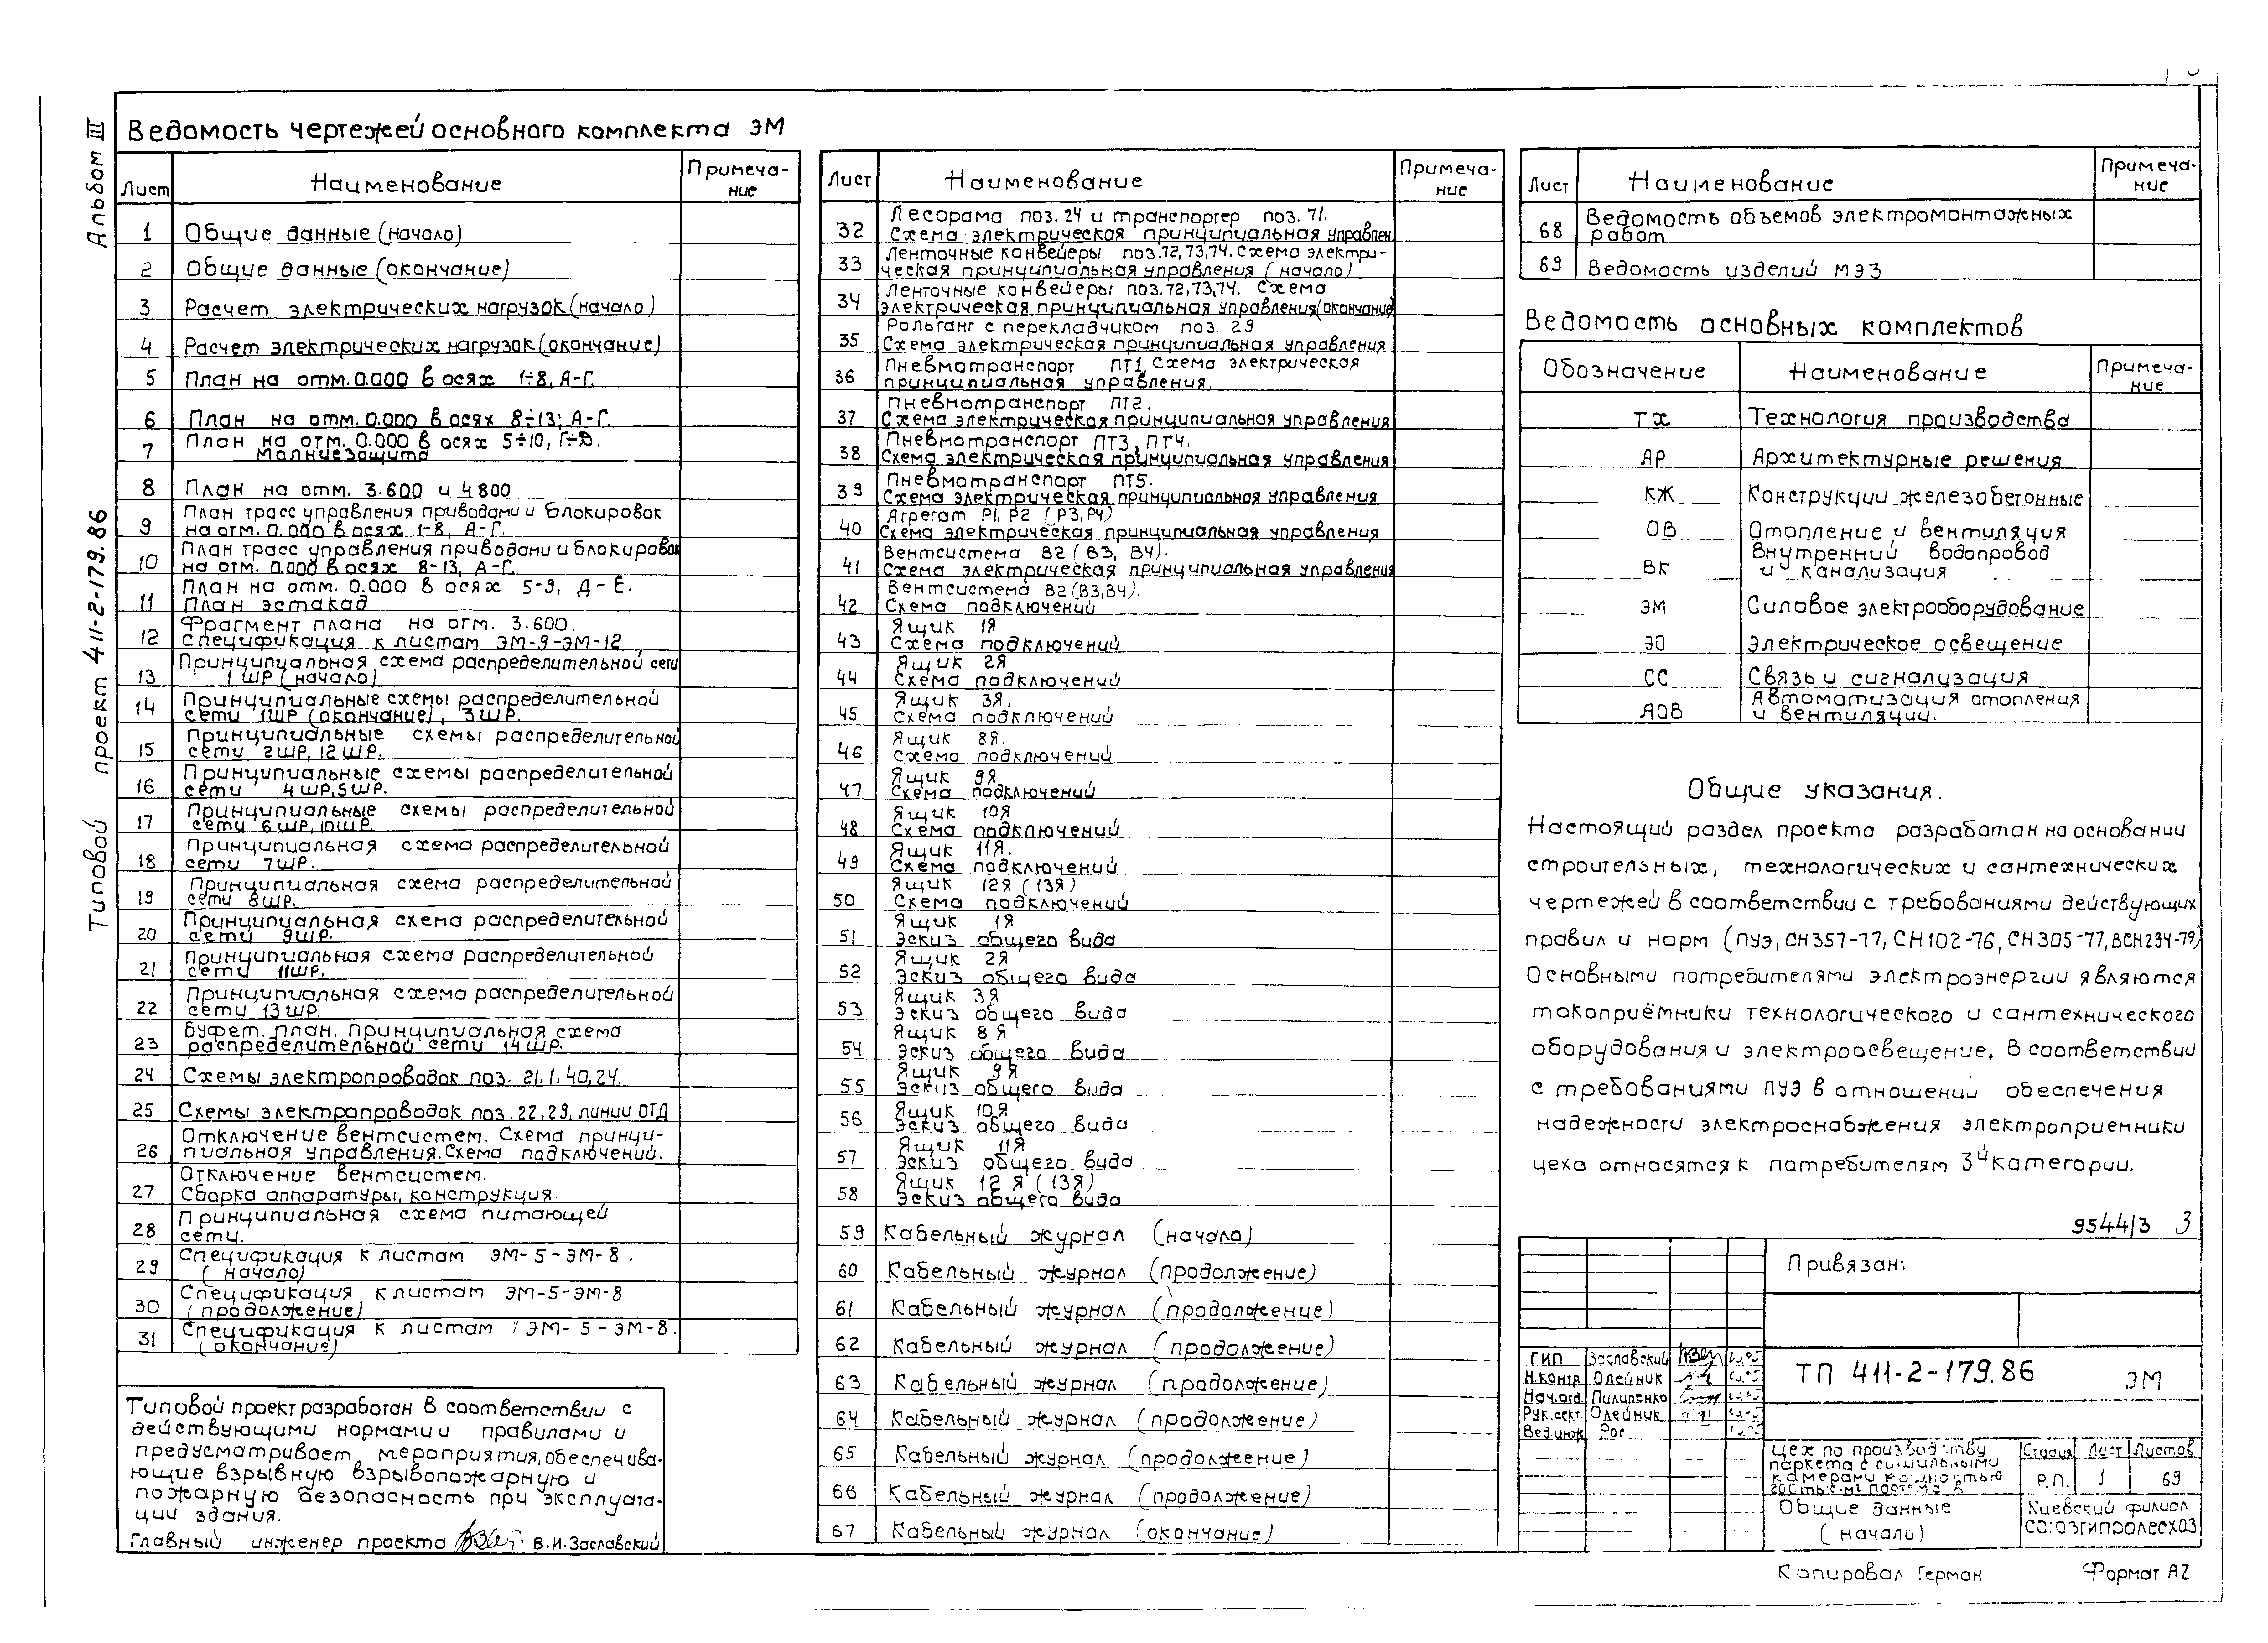 Альбом III
Типовой проект 411-2-179.86
Ведомость чертежей основного комплекта ЭМ
Лист
Наименование
Примеча-
ние
1 Общие данные (начало)
2 Общие данные (окончание)
3 Расчет электрических нагрузок (начало)
4 Расчет электрических нагрузок (окончание)
5 План на отм. 0.000 в осях 1÷8, А-Г.
6 План на отм. 0.000 в осях 8÷13; А-Г.
7 План на отм. 0.000 в осях 5÷10, Г÷Д.
Молниезащита
8 План на отм. 3.600 и 4800
9 План трасс управления приводами и блокировок
на отм. 0.000 в осях 1-8, А-Г.
10 План трасс управления приводами и блокировок
на отм. 0.000 в осях 8-13, А-Г.
11 План на отм. 0.000 в осях 5-9, Д-Е.
План эстакад
12 Фрагмент плана на отм. 3.600.
Спецификация к листам ЭМ-9-ЭМ-12
13 Принципиальная схема распределительной сети
1 ШР (начало)
14 Принципиальные схемы распределительной
сети 1ШР (окончание), 3ШР.
15 Принципиальные схемы распределительной
сети 2ШР, 12 ШР.
16 Принципиальные схемы распределительной
сети 4 ШР, 5 ШР.
17 Принципиальные схемы распределительной
сети 6 ШР, 10ШР.
18 Принципиальная схема распределительной
сети 7ШР.
19 Принципиальная схема распределительной
сети 8ШР.
20 Принципиальная схема распределительной
сети 9ШР.
21 Принципиальная схема распределительной
сети 11ШР.
22 Принципиальная схема распределительной
сети 13 ШР.
23 Буфет. план. Принципиальная схема
распределительной сети 14 ШР.
24 Схемы электропроводок поз. 21, 1, 40, 24.
25 Схемы электропроводок поз. 22, 29, линии ОТД
26 Отключение вентсистем. Схема принци-
пиальная управления. Схема подключений.
27 Отключение вентсистем.
Сборка аппаратуры, конструкция.
28 Принципиальная схема питающей
сети.
29 Спецификация к листам ЭМ-5-ЭМ-8.
(начало)
30 Спецификация к листам ЭМ-5-ЭМ-8
(продолжение)
31 Спецификация к листам ЭМ-5-ЭМ-8.
(окончание)
Типовой проект разработан в соответствии с
действующими нормами и правилами и
предусматривает мероприятия, обеспечива-
ющие взрывную взрывопожарную и
пожарную безопасность при эксплуата-
ции здания.
Главный инженер проекта В.И. Заславский
Лист
Наименование
Примеча-
ние
32 Лесорама поз. 24 и транспортер поз. 71.
Схема электрическая принципиальная управлен
33 Ленточные конвейеры поз. 72, 73, 74. Схема электри-
ческая принципиальная управления (начало)
34 Ленточные конвейеры поз. 72, 73, 74. Схема
электрическая принципиальная управления (окончание)
35 Рольганг с перекладчиком поз. 29
Схема электрическая принципиальная управления
36 Пневмотранспорт ПТ1. Схема электрическая
принципиальная управления.
37 Пневмотранспорт ПТ2.
Схема электрическая принципиальная управления
38 Пневмотранспорт ПТ3, ПТ4.
Схема электрическая принципиальная управления
39 Пневмотранспорт ПТ5.
Схема электрическая принципиальная управления
40 Агрегат Р1, Р2 (Р3, Р4)
Схема электрическая принципиальная управления
41 Вентсистема В2 (В3, В4).
Схема электрическая принципиальная управления
42 Вентсистема В2 (В3, В4).
Схема подключений
43 Ящик 1Я
Схема подключений
44 Ящик 2Я
Схема подключений
45 Ящик 3Я.
Схема подключений
46 Ящик 8Я.
Схема подключений
47 Ящик 9Я
Схема подключений
48 Ящик 10Я
Схема подключений
49 Ящик 11Я.
Схема подключений
50 Ящик 12Я (13Я)
Схема подключений
51 Ящик 1Я
Эскиз общего вида
52 Ящик 2Я
Эскиз общего вида
53 Ящик 3Я
Эскиз общего вида
54 Ящик 8Я
Эскиз общего вида
55 Ящик 9Я
Эскиз общего вида
56 Ящик 10Я
Эскиз общего вида
57 Ящик 11Я
Эскиз общего вида
58 Ящик 12 Я (13Я)
Эскиз общего вида
59 Кабельный журнал (начало)
60 Кабельный журнал (продолжение)
61 Кабельный журнал (продолжение)
62 Кабельный журнал (продолжение)
63 Кабельный журнал (продолжение)
64 Кабельный журнал (продолжение)
65 Кабельный журнал (продолжение)
66 Кабельный журнал (продолжение)
67 Кабельный журнал (окончание)
Лист
Наименование
Примеча-
ние
68 Ведомость объемов электромонтажных
работ
69 Ведомость изделий МЭЗ
Ведомость основных комплектов
Обозначение
Наименование
Примеча-
ние
ТХ Технология производства
АР Архитектурные решения
КЖ Конструкции железобетонные
ОВ Отопление и вентиляция
ВК Внутренний водопровод
и канализация
ЭМ Силовое электрооборудование
ЭО Электрическое освещение
СС Связь и сигнализация
АОВ Автоматизация отопления
и вентиляции.
Общие указания.
Настоящий раздел проекта разработан на основании
строительных, технологических и сантехнических
чертежей в соответствии с требованиями действующих
правил и норм (ПУЭ, СН357-77, СН102-76, СН305-77, ВСН294-79)
Основными потребителями электроэнергии являются
токоприёмники технологического и сантехнического
оборудования и электроосвещение. В соответствии
с требованиями ПУЭ в отношении обеспечения
надежности электроснабжения электроприемники
цеха относятся к потребителям 3й категории.
9544/3 3
Привязан:
ГИП Заславский
Н.контр. Олейник
Нач.отд. Пилипенко
Рук.сект. Олейник
Вед.инж. Рог
ТП 411-2-179.86 ЭМ
Цех по производству
паркета с сушильными
камерами мощностью
Стадия Лист Листов
Р.П. 1 69
Общие данные
(начало)
Киевский филиал
СОЮЗГИПРОЛЕСХОЗ
Копировал Герман
Формат А2